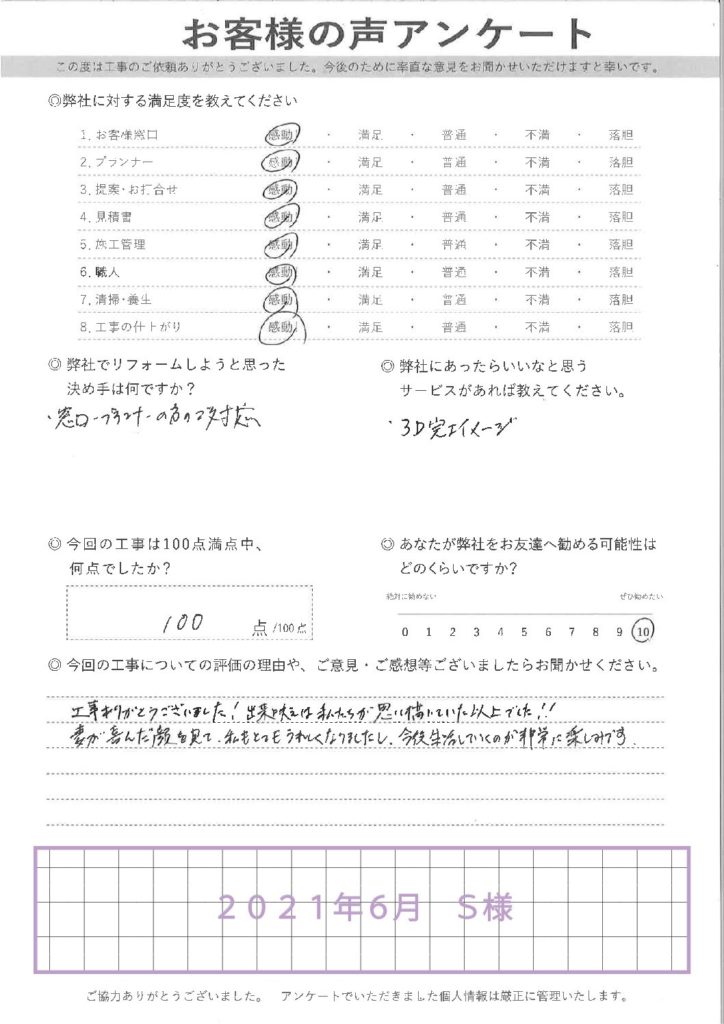 お客様の声アンケート
この度は工事のご依頼ありがとうございました。今後のために率直な意見をお聞かせいただけますと幸いです。
◎弊社に対する満足度を教えてください
1. お客様窓口 感動 ・ 満足 ・ 普通 ・ 不満 ・ 落胆
2. プランナー 感動 ・ 満足 ・ 普通 ・ 不満 ・ 落胆
3. 提案・お打合せ 感動 ・ 満足 ・ 普通 ・ 不満 ・ 落胆
4. 見積書 感動 ・ 満足 ・ 普通 ・ 不満 ・ 落胆
5. 施工管理 感動 ・ 満足 ・ 普通 ・ 不満 ・ 落胆
6. 職人 感動 ・ 満足 ・ 普通 ・ 不満 ・ 落胆
7. 清掃・養生 感動 ・ 満足 ・ 普通 ・ 不満 ・ 落胆
8. 工事の仕上がり 感動 ・ 満足 ・ 普通 ・ 不満 ・ 落胆
◎ 弊社でリフォームしようと思った
決め手は何ですか?
・窓口・プランナーの方の対応
◎ 弊社にあったらいいなと思う
サービスがあれば教えてください。
・3D完工イメージ
◎ 今回の工事は100点満点中、
何点でしたか?
100 点 /100点
◎ あなたが弊社をお友達へ勧める可能性は
どのくらいですか?
絶対に勧めない ぜひ勧めたい
0 1 2 3 4 5 6 7 8 9 10
◎ 今回の工事についての評価の理由や、ご意見・ご感想等ございましたらお聞かせください。
工事ありがとうございました!出来映えは私たちが思い描いていた以上でした!!
妻が喜んだ顔を見て、私もとてもうれしくなりましたし、今後生活していくのが非常に楽しみです。
2021年6月 S様
ご協力ありがとうございました。 アンケートでいただきました個人情報は厳正に管理いたします。